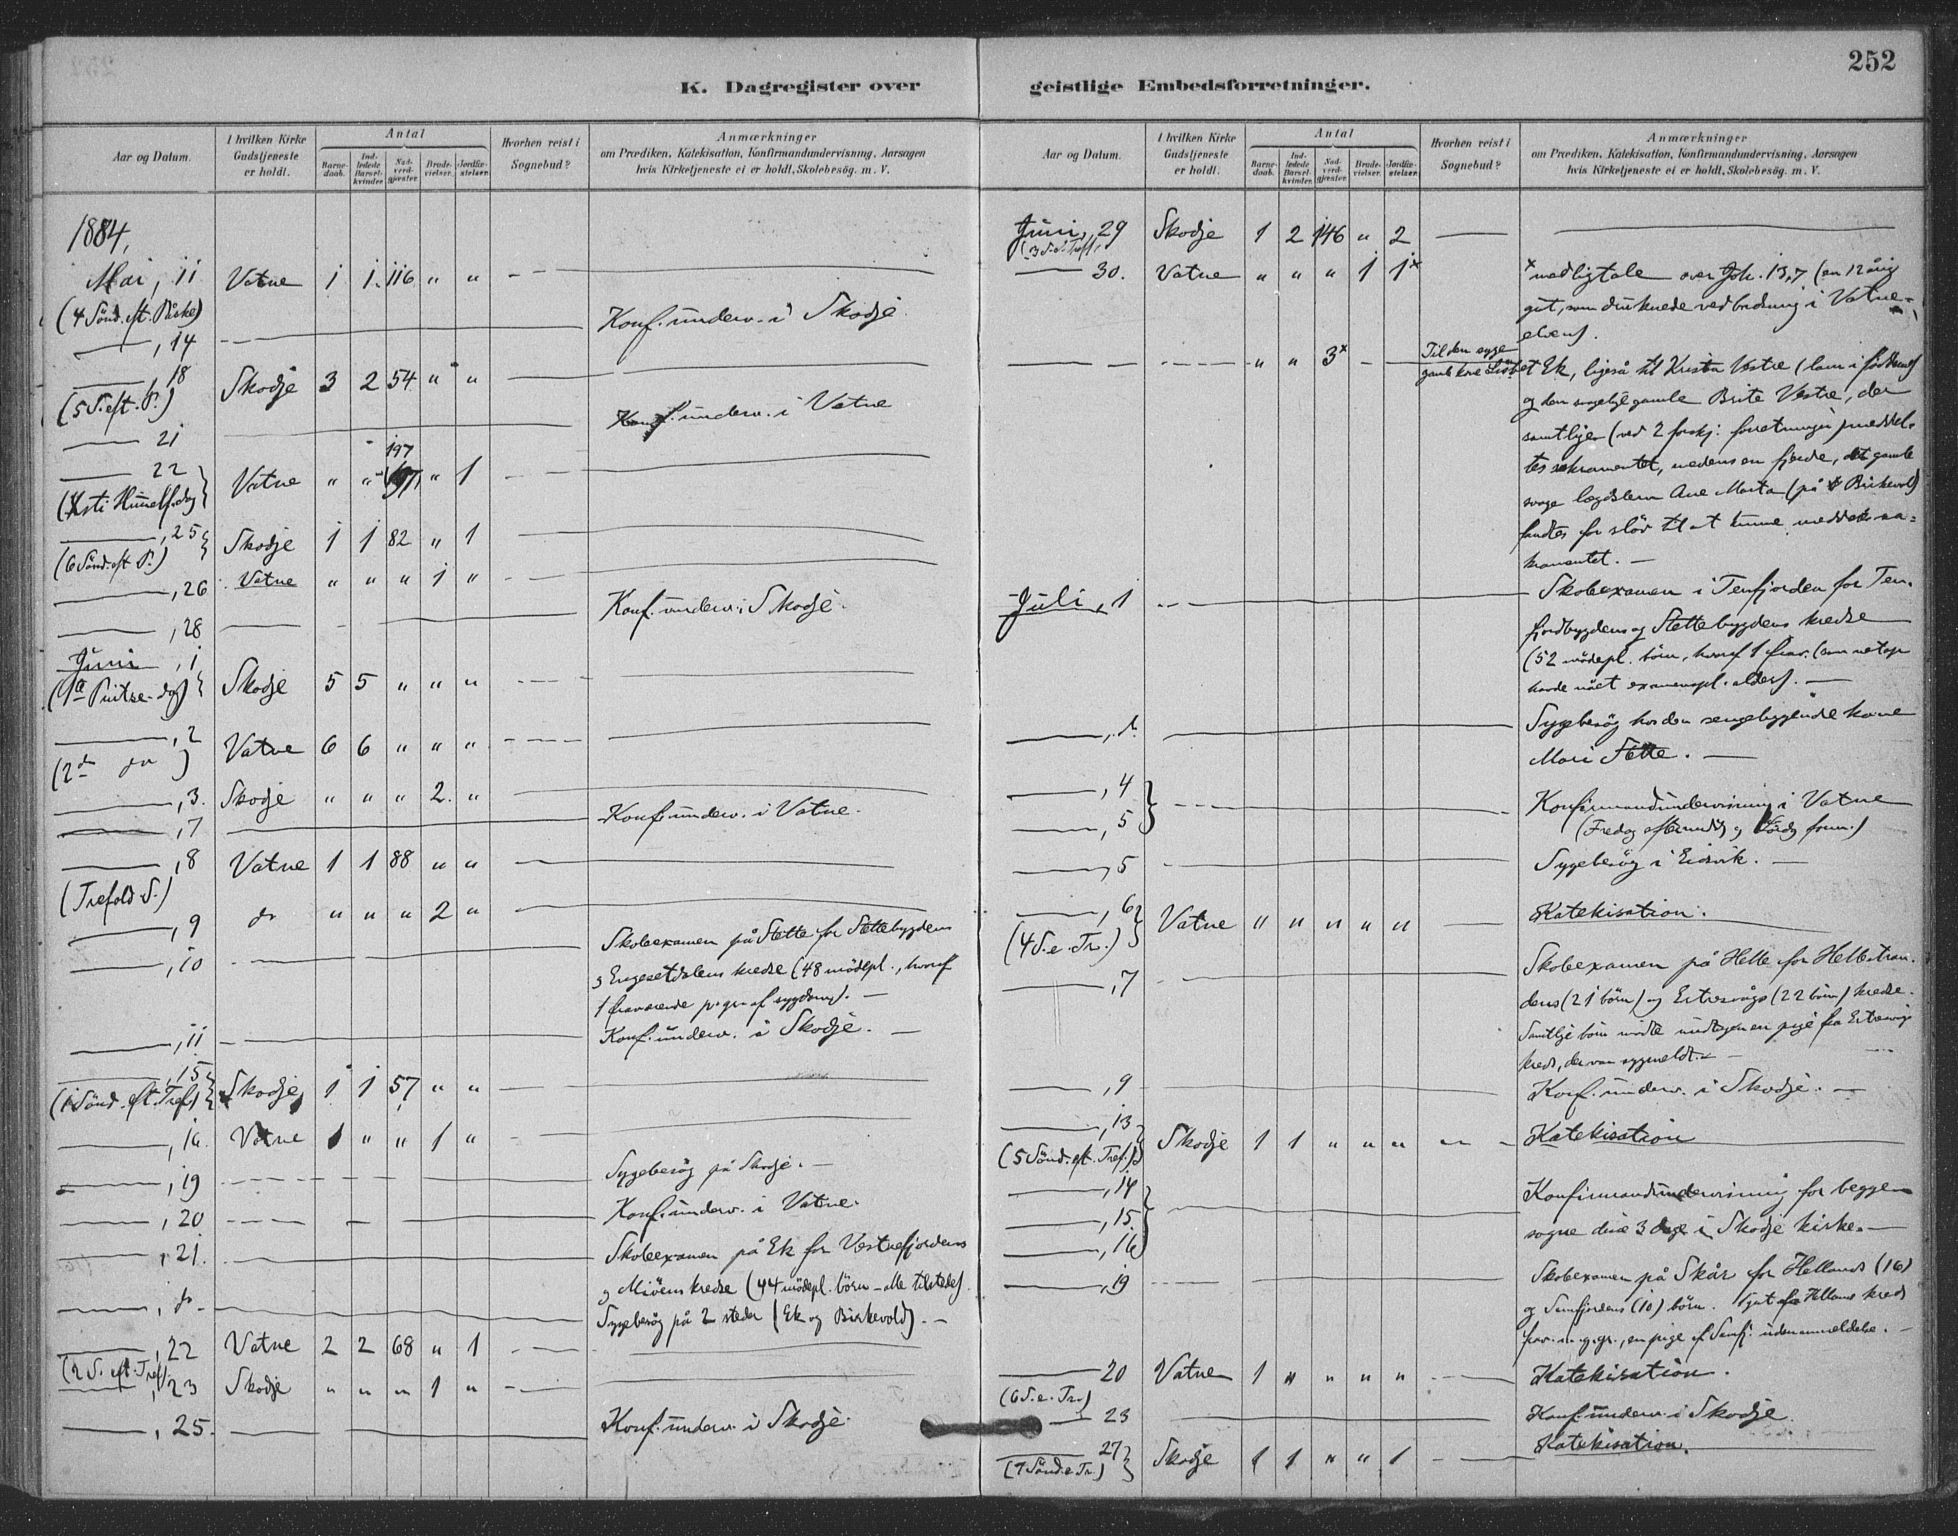 252
K. Dagregister over
geistlige Embedsforretninger.
Aar og Datum.
I hvilken Kirke Gudstjeneste er holdt.
Antal
Barne-daab.
Ind-ledede Barsel-kvinder.
Nad-verd-gjester.
Brude-vielser.
Jordfæ-stelser.
Hvorhen reist i Sognebud?
Anmærkninger
om Prædiken, Katekisation, Konfirmandundervisning, Aarsagen
hvis Kirketjeneste ei er holdt, Skolebesøg. m. V.
1884,
Mai, 11 Vatne 1 1 116 " "
(4 Sönd. eft. Påske)
, 14 Konf. underv. i Skodje.
, 18 Skodje 3 2 54 " "
(5 S. eft. P.)
21 Konf. underv. i Vatne
197
22 Vatne " " " 1
(Xsti Himelf. dag)
, 25 Skodje 1 1 82 " 1
(6 Sönd. eft P.)
, 26 Vatne " " " 1 "
, 28 Konf. underv. i Skodje.
Juni, 1 Skodje 5 5 " " "
(1ª Pintse-dag)
, 2 Vatne 6 6 " " "
(2den do)
, 3. Skodje " " " 2. "
, 7 Konf. underv. i Vatne.
, 8 Vatne 1 1 88 " "
(Trefold. S.)
, 9 do " " " 2 "
, 10 Skoleexamen på Stette for Stettebygdens
og Engesetdalens kredse (48 mödepl., hvoraf
1 fraværende på gr. af sygdom). —
, 11 Konf. underv. i Skodje. —
, 15 Skodje 1 1 57 " "
(1 Sönd. eft. Tref.)
, 16. Vatne " " 1 "
, 19 Sygebesög på Skodje. —
, 20 Konf. underv. i Vatne.
, 21. Skoleexamen på Ek for Vestrefjordens
og Miöens kredse (44 mödepl. börn – alle tilstede).
, do - Sygebesög på 2 steder (Ek og Birkevold). —
, 22 Vatne 2 2 68 " 1
(2 S. eft. Tref.)
, 23 Skodje " " " 1 "
, 25. Konf. underv. i Skodje.
Aar og Datum.
I hvilken Kirke Gudstjeneste er holdt.
Antal
Barne-daab.
Ind-ledede Barsel-kvinder.
Nad-verd-gjester.
Brude-vielser.
Jordfæ-stelser.
Hvorhen reist i Sognebud?
Anmærkninger
om Prædiken, Katekisation, Konfirmandundervisning, Aarsagen
hvis Kirketjeneste ei er holdt, Skolebesøg. m. V.
Juni, 29 Skodje 1 2 146 " 2
(3 S. e. Tref.)
30. Vatne " " " 1 1x x med ligtale over Joh. 13,7 (en 12 årig
gut, som druknede ved badning i Vatne-
elven).
" " 3x Til den syge
gamle kone Lisbet Ek, ligeså til Krista Vestre (lam i födderne)
og den svagelige gamle Brite Vestre, der
samtlige (ved 2 forskj. forretninger) meddel-
tes sakramentet, medens en fjerde, det gamle
svage lægdslem Ane Marta (på Birkevold)
fandtes for slöv til at kunne meddeles sa-
kramentet. —
Juli, 1 Skoleexamen i Tenfjorden for Ten-
fjordbygdens og Stettebygdens kredse
(52 mödepl. börn, hvoraf 1 frav. (som netop
havde nået examenspl. alder). —
, d. Sygebesög hos den sengeliggende kone
Mari Stette. —
, 4
, 5 Konfirmandundervisning i Vatne
(Fredag eftermidd. og Lördg form.)
, 5 Sygebesög i Eidsvik. —
, 6 Vatne " " " " " Katekisation.
(4 S. e. Tr.)
, 7 Skoleexamen på Helle for Hellestran-
dens (21 börn) og Estresvågs (22 börn) kredse.
Samtlige börn mödte undtagen en pige fra
kreds, der var sygmeldt. —
, 9 Konf. underv. i Skodje. —
, 13 Skodje 1 1 " " " Katekisation
(5 Sönd. eft. Tref.)
, 14
, 15. Konfirmandundervisning for begge
, 16 sogne disse 3 dage i Skodje kirke. —
, 19 Skoleexamen på Skår for Hellands (16)
og Semfjordens (10) börn. 1 gut af Hellands kreds
frav. , en pige af Semfj. uden anmeldelse. —
20 Vatne 1 " " " " Katekisation.
(6 S. e. Tr.)
23 Konf. underv. i Skodje.
27 Skodje 1 1 " " 1 Katekisation.
(7 Sönd. e Tr.)